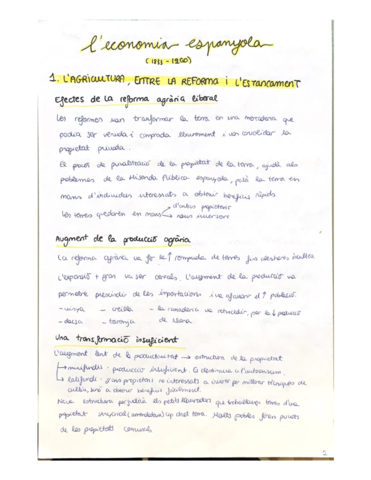 L'economia espanyola
(1833 - 1900)
1. L'AGRICULTURA, ENTRE LA REFORMA I L'ESTANCAMENT
Efectes de la reforma agrària liberal
Les reformes van transformar la terra en una mercaderia que
podia ser venuda i comprada lliurement i van consolidar la
propietat privada.
El procés de privatització de la propietat de la terra, ajudà als
problemes de la Hisenda Pública espanyola, però la terra en
mans d'individus interessats a obtenir beneficis ràpids
d'antics propietaris
Les terres quedaren en mans nous inversors
Augment de la producció agrària
La reforma agrària va fer la ↑ conreada de terres fins aleshores incultes
L'expansió + gran va ser cereals. L'augment de la producció va
permetre prescindir de les importacions i va afavorir el ↑ població.
- vinya - ametlla - la ramaderia va retrocedir, per la ↓ producció
- taronja de llana.
Una transformació insuficient
L'augment lent de la productivitat → estructura de la propietat
→ minifundis: producció insuficient.
→ latifundi: grans propietaris no interessats a invertir per millorar tècniques de
cultiu, sinó a obtenir beneficis fàcilment.
Nova estructura perjudicà els petits llauradors que treballaven terres d'una
propietat
de les propietats comunals
1